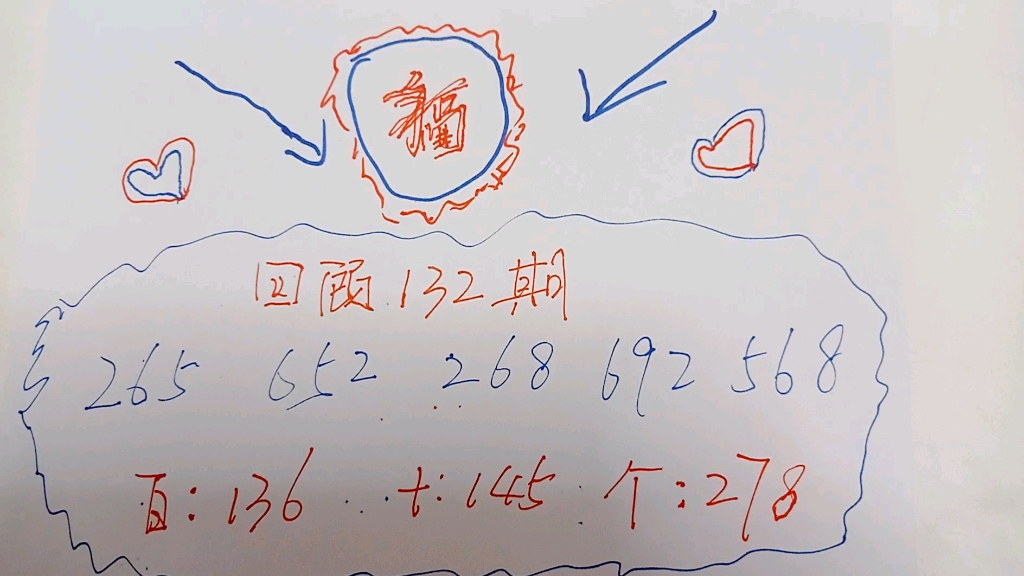 福
回顾132期
265 652 268 692 568
百:136 十:145 个:278